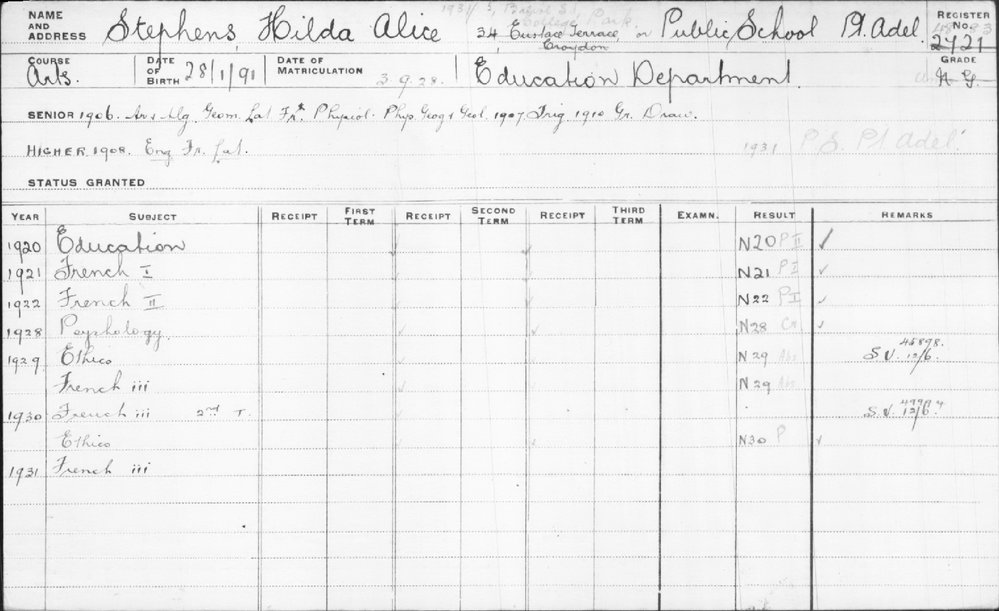 NAME AND ADDRESS Stephens, Hilda Alice 34 Eustace Terrace, Croydon or Public School Pt. Adel. REGISTER No. 2421
1931 College Park
COURSE Arts. DATE OF BIRTH 28/1/91 DATE OF MATRICULATION 3.9.28. Education Department. GRADE N G.
SENIOR 1906. Ar & Alg. Geom. Lat Fr* Physiol. Phys Geog & Geol. 1907 Trig. 1910 Gr. Draw.
HIGHER 1908. Eng Fr. Lat. 1931 P.S. Pt Adel.
STATUS GRANTED
YEAR SUBJECT RECEIPT FIRST TERM RECEIPT SECOND TERM RECEIPT THIRD TERM EXAMN. RESULT REMARKS
1920 Education N20 P II ✓
1921 French I N21 P I ✓
1922 French II N22 P I ✓
1928 Psychology N28 Cr ✓
1929 Ethics N29 Abs 45898. S.V. 12/6.
French iii N29 Abs
1930 French iii 2nd T. S.V. 12/6.
Ethics N30 P ✓
1931 French iii